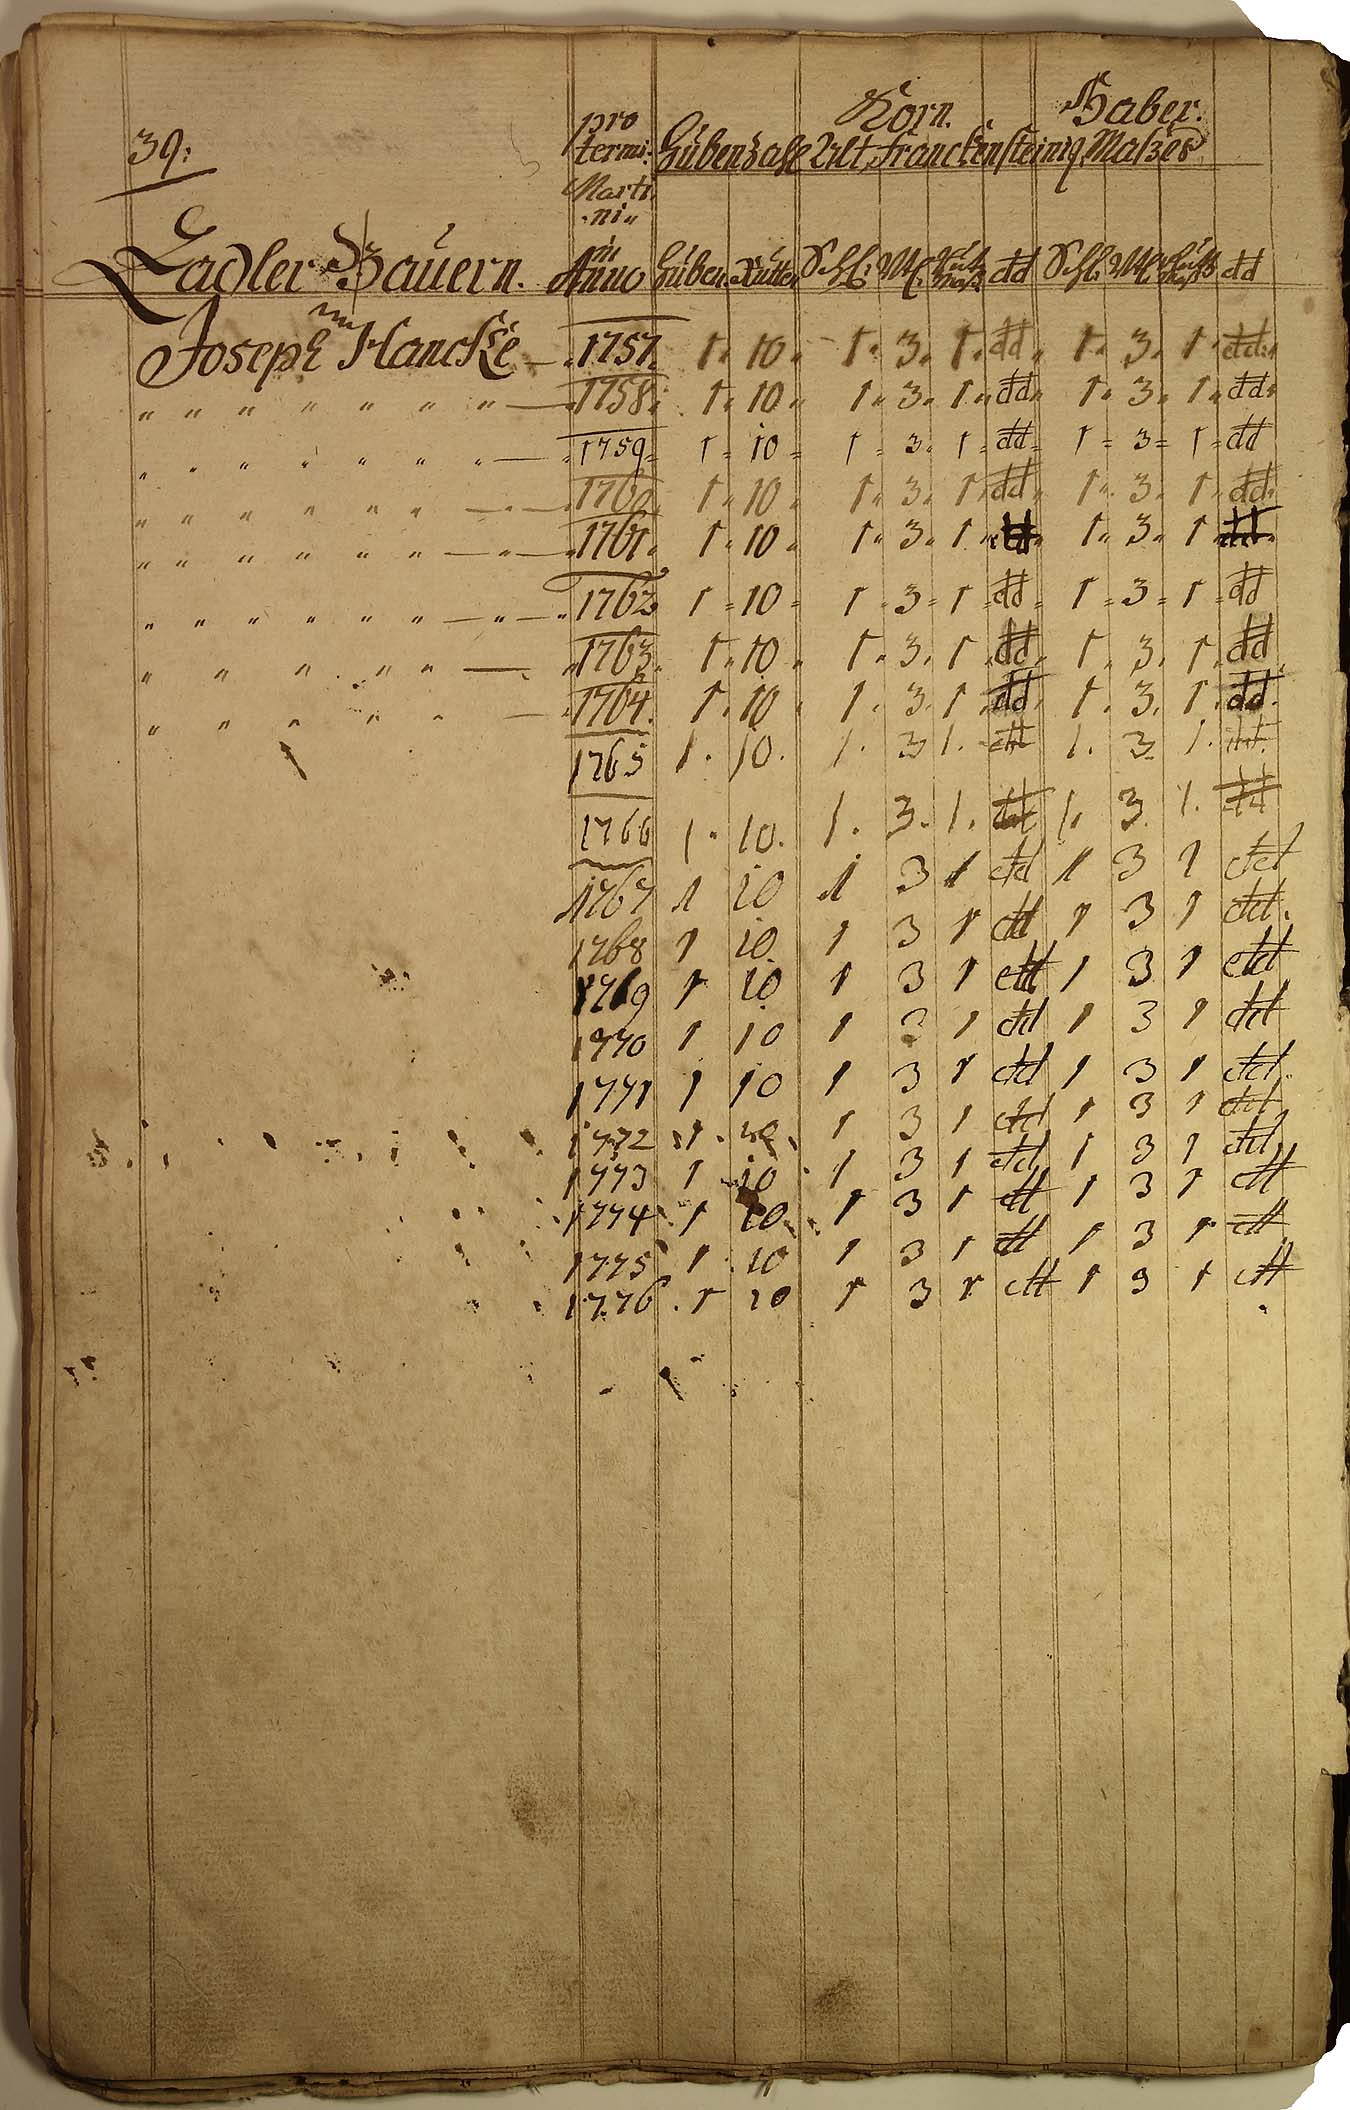 39.
pro Korn. Haber.
termi: Hubenzahl Alt Franckensteinig. Maßes
Marti
ni
Zadler Bauern. in Anno Huben Rutten Schl: Mtz. dd Schl: dd
Joseph Hancke 1757. 1. 10. 1. 3. 1. dd. 1. 3. 1. dd.
" " " " " " " 1758. 1. 10. 1. 3. 1. dd. 1. 3. 1. dd.
" " " " " " " 1759 1 10 1 3 1 dd 1 3 1 dd
" " " " " " 1760 1. 10. 1. 3. 1. dd. 1. 3. 1. dd.
" " " " " " 1761. 1. 10. 1. 3. 1. dd. 1. 3. 1. dd.
" " " " " " 1762 1 10 1 3 1 dd 1 3 1 dd
" " " " " 1763 1. 10. 1. 3. 1. dd. 1. 3. 1. dd
" " " " " 1764. 1. 10. 1. 3. 1. dd. 1. 3. 1. dd.
1765 1. 10. 1. 3 1. dd 1. 3. 1. dd.
1766 1. 10. 1. 3. 1. dd 1. 3. 1. dd
1767 1 10 1 3 1 dd 1 3 1 dd
1768 1 10 1 3 1 dd 1 3 1 dd.
1769 1 10 1 3 1 dd 1 3 1 dd
1770 1 10 1 3 1 dd 1 3 1 dd
1771 1 10 1 3 1 dd 1 3 1 dd.
1772 1. 10 1 3 1 dd 1 3 1 dd
1773 1 10 1 3 1 dd 1 3 1 dd
1774 1 10 1 3 1 dd 1 3 1 dd
1775 1 10 1 3 1 dd 1 3 1 dd
1776 1 10 1 3 1 dd 1 3 1 dd